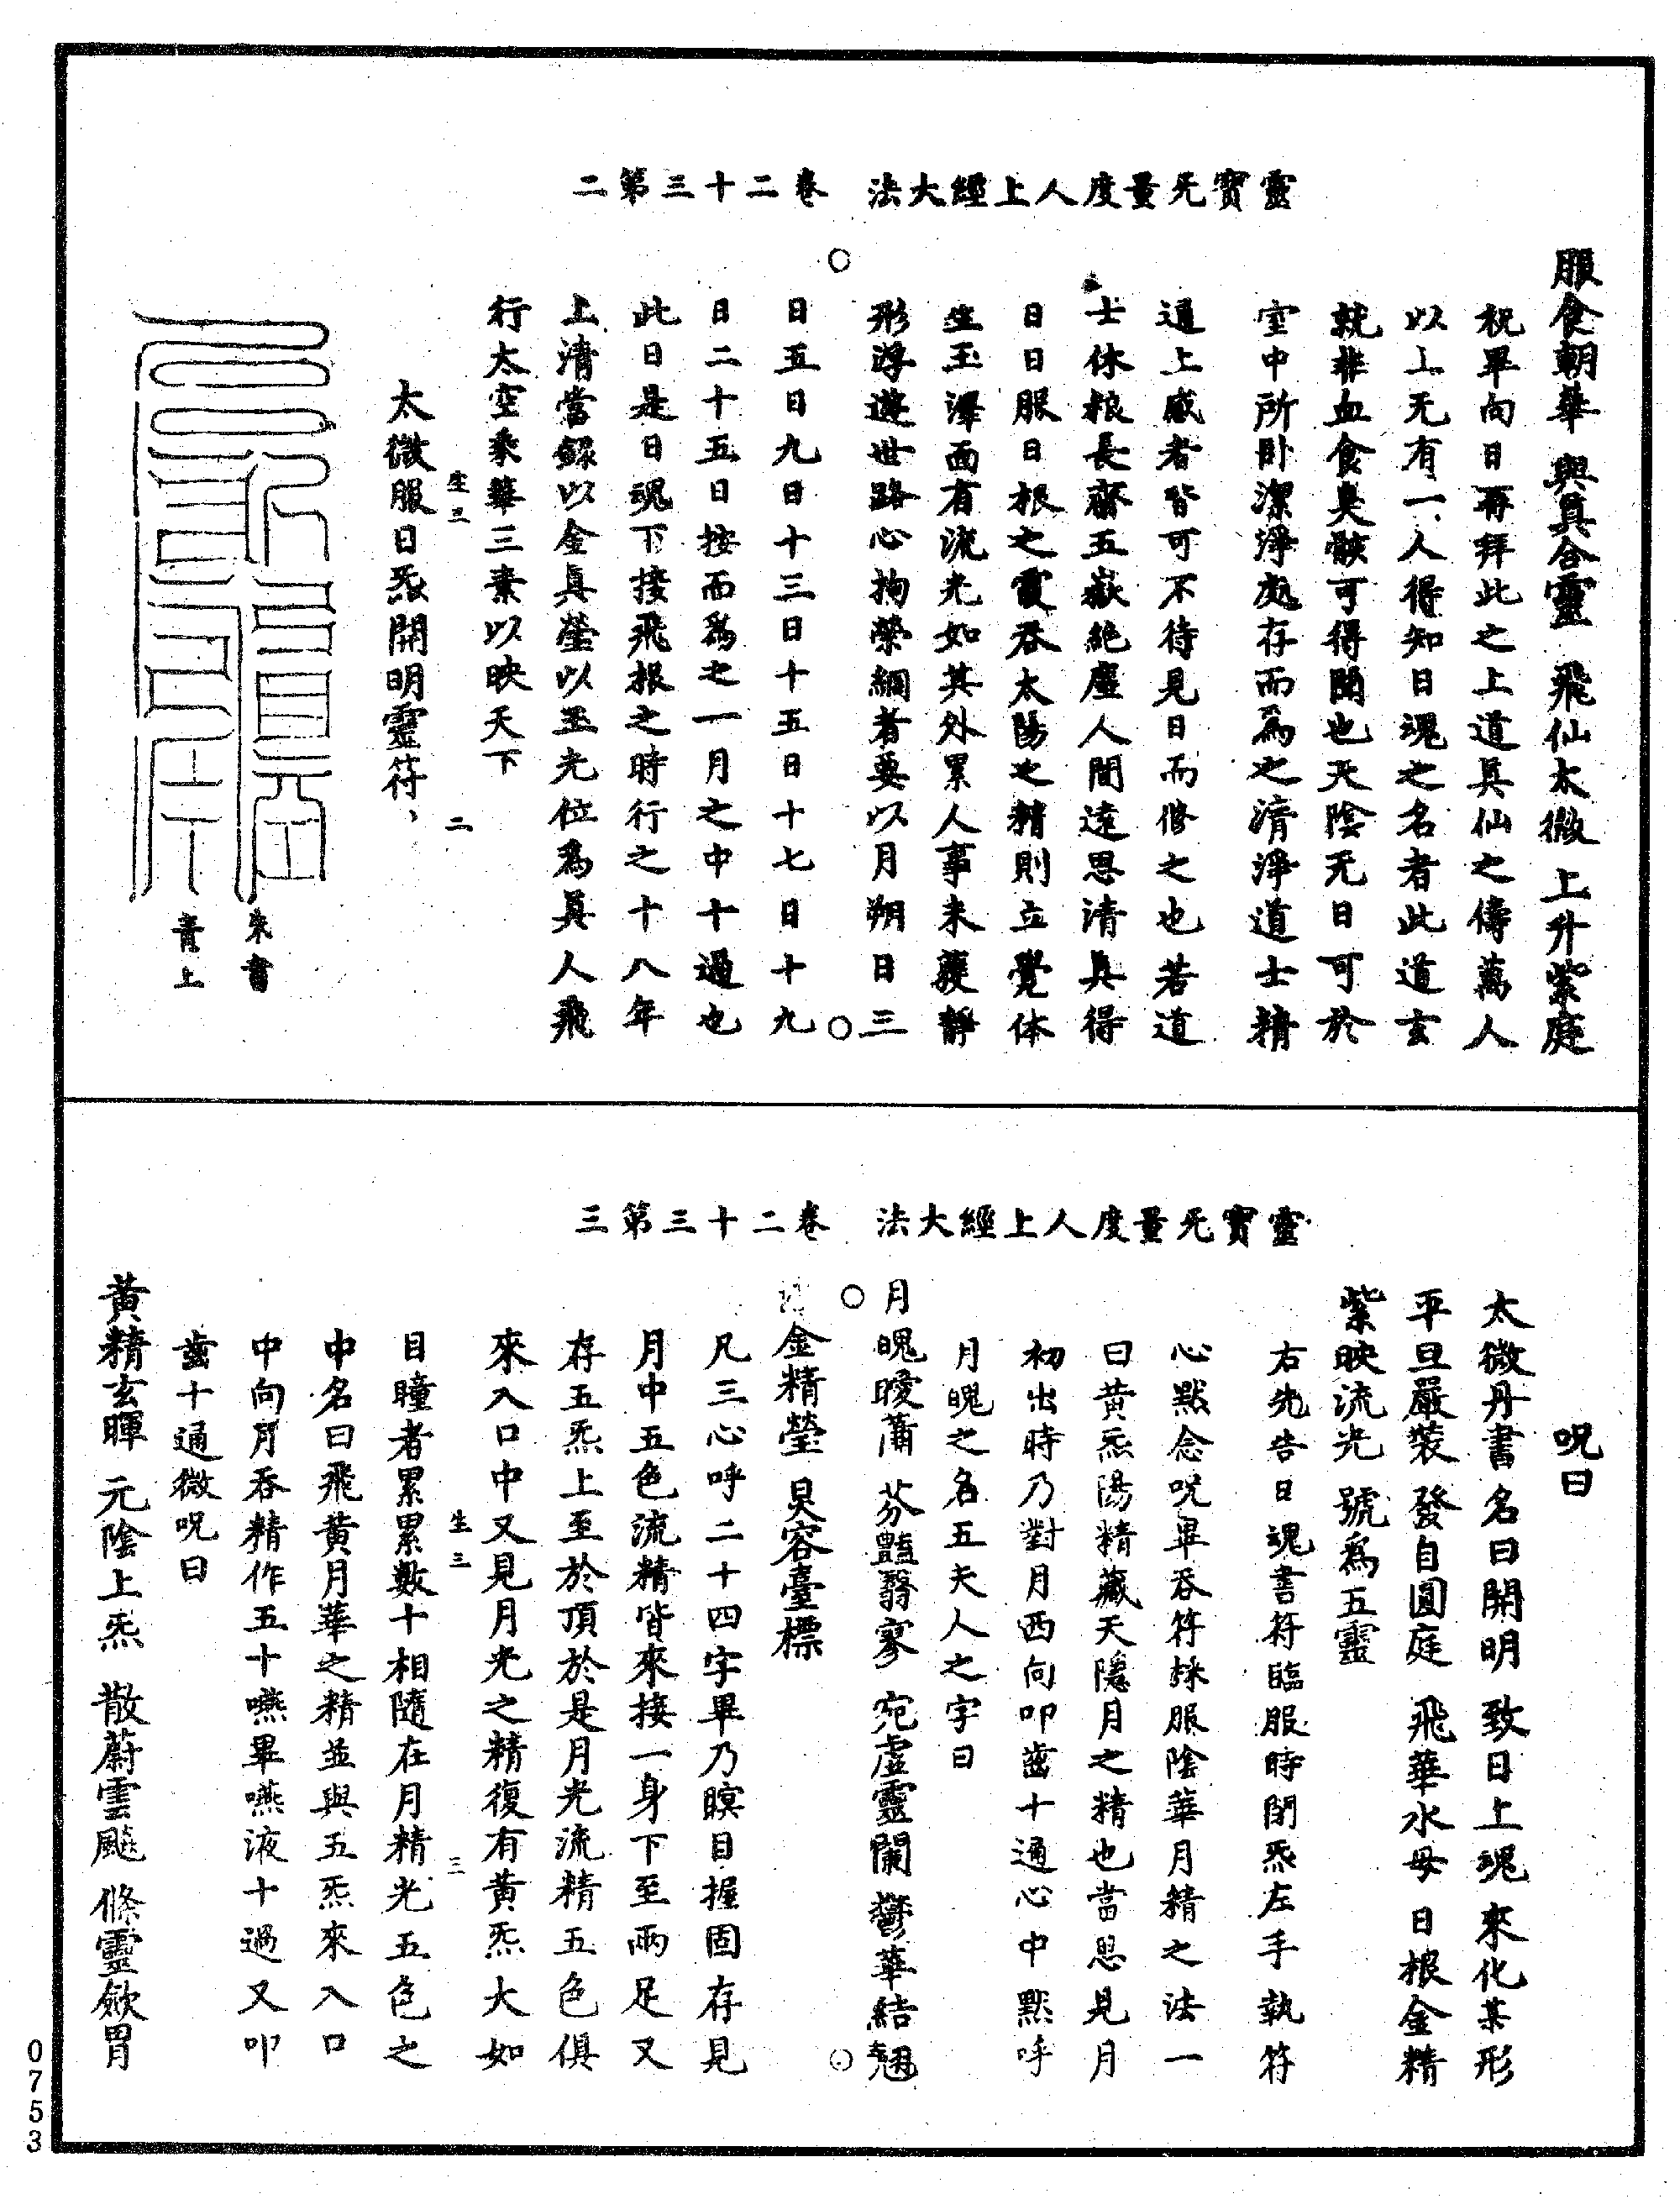 靈寶无量度人上經大法　卷二十三第二
服食朝華　與真合靈　飛仙太微　上升紫庭
祝畢向日再拜此之上道真仙之儔萬人
以上无有一人得知日魂之名者此道玄
就非血食臭骸可得聞也天陰无日可於
室中所卧潔淨處存而為之清淨道士精
通上感者皆可不待見日而修之也若道
士休粮長齋五嶽絶塵人間遠思清真得
日日服日根之霞吞太陽之精則立覺体
生玉澤面有流光如其外累人事未藂靜
形浮遊世路心拘榮網者要以月朔日三
日五日九日十三日十五日十七日十九
日二十五日按而為之一月之中十過也
此日是日魂下接飛根之時行之十八年
上清當錄以金真瑩以玉光位為真人飛
行太空乘華三素以映天下
生三　二
太微服日炁開明靈符
朱書
青上
靈寶无量度人上經大法　卷二十三第三
呪曰
太微丹書　名曰開明　致日上魂　來化某形
平旦嚴裝　發自圓庭　飛華水母　日根金精
紫映流光　號為五靈
右先告日魂書符臨服時閉炁左手執符
心默念呪畢吞符㳍服陰華月精之法一
曰黃炁陽精藏天隱月之精也當思見月
初出時乃對月西向叩齒十通心中默呼
月魄之名五夫人之字曰
月魄曖蕭　芬豔翳寥　宛虛靈闌　鬱華結翹
金精瑩　炅容臺標
凡三心呼二十四字畢乃瞑目握固存見
月中五色流精皆來接一身下至兩足又
存五炁上至於頂於是月光流精五色俱
來入口中又見月光之精復有黃炁大如
生三　三
目瞳者累累數十相隨在月精光五色之
中名曰飛黃月華之精並與五炁來入口
中向月吞精作五十嚥畢嚥液十過又叩
齒十通微呪曰
黃精玄暉　元陰上炁　散蔚雲飈　條靈歛胃
0753